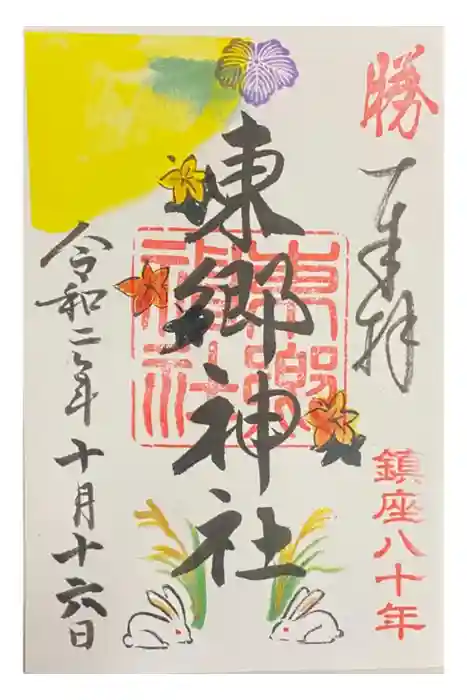 勝
奉拝
鎮座八十年
東郷神社
東郷神社
令和二年十月十六日